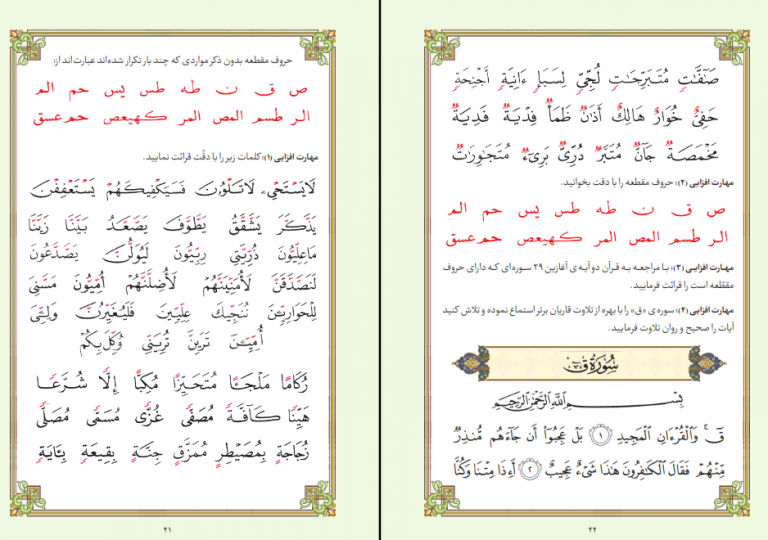 حروف مقطعه بدون ذکر مواردی که چند بار تکرار شده‌اند عبارت‌اند از:
ص ق ن طه طس یس حم الم
الر طسم المص المر کهیعص حم عسق
مهارت افزایی (۱): کلمات زیر را با دقّت قرائت نمایید.
لَايَسْتَحْيِۦ لَاتَلْوُۥنَ فَسَيَكْفِيكَهُمْ يَسْتَعْفِفْنَ
يَذَّكَّرَ يَشَّقَّقُ يَطَّوَّفَ يَصَّعَّدُ بَيَّنَّا زَيَّنَّا
مَاعِلِّيُّونَ ذُرِّيَّتِي رِبِّيُّونَ لَيُوَلُّنَّ يَصَّدَّعُونَ
لَنَصَّدَّقَنَّ لَأُمَنِّيَنَّهُمْ لَأُضِلَّنَّهُمْ أُمِّيُّونَ مَسَّنِيَ
لِلْحَوَارِيِّـۧنَ نُنَجِّيكَ عِلِّيِّينَ فَلَيُغَيِّرُنَّ وَلِـِّۧيَ
أُمِّيِّـۧنَ تَرَيِنَّ تُرِيَنِّي وُكِّلَ بِكُمْ
رُكَامًا مَلْجَـًٔا مُتَحَيِّزًا مُكِبًّا إِلًّا شُرَّعًا
هَيِّنًا كَآفَّةً مُصَفًّى غُزًّى مُسَمًّى مُصَلًّى
زُجَاجَةٍ بِمُصَيْطِرٍ مُمَزَّقٍ جِنَّةٍ بِقِيعَةٍ بِـَٔايَةٍ
۲۱
صَـٰٓفَّـٰتٍ مُتَبَرِّجَـٰتٍ لُجِّيٍّ لِسَبَإٍ ءَانِيَةٍ أَجْنِحَةٍ
حَفِيٌّ خُوَارٌ هَالِكٌ أَذَانٌ ظَمَأٌ فِدْيَةٌ فَدِيَةٌ
مَخْمَصَةٌ جَآنٌّ مُتَبَّرٌ دُرِّيٌّ بَرِيٓءٌ مُتَجَـٰوِرَاتٌ
مهارت افزایی (۲): حروف مقطعه را با دقت بخوانید.
ص ق ن طه طس یس حم الم
الر طسم المص المر کهیعص حم عسق
مهارت افزایی (۳): با مراجعه به قرآن دو آیه‌ی آغازین ۲۹ سوره‌ای که دارای حروف
مقطعه است را قرائت فرمایید.
مهارت افزایی (۴): سوره‌ی «ق» را با بهره از تلاوت قاریان برتر استماع نموده و تلاش کنید
آیات را صحیح و روان تلاوت فرمایید.
سُورَةُ ق
بِسْمِ اللَّهِ الرَّحْمَٰنِ الرَّحِيمِ
قٓ ۚ وَالْقُرْءَانِ الْمَجِيدِ ﴿١﴾ بَلْ عَجِبُوٓا۟ أَن جَآءَهُم مُّنذِرٌ
مِّنْهُمْ فَقَالَ الْكَـٰفِرُونَ هَـٰذَا شَىْءٌ عَجِيبٌ ﴿٢﴾ أَءِذَا مِتْنَا وَكُنَّا
۲۲